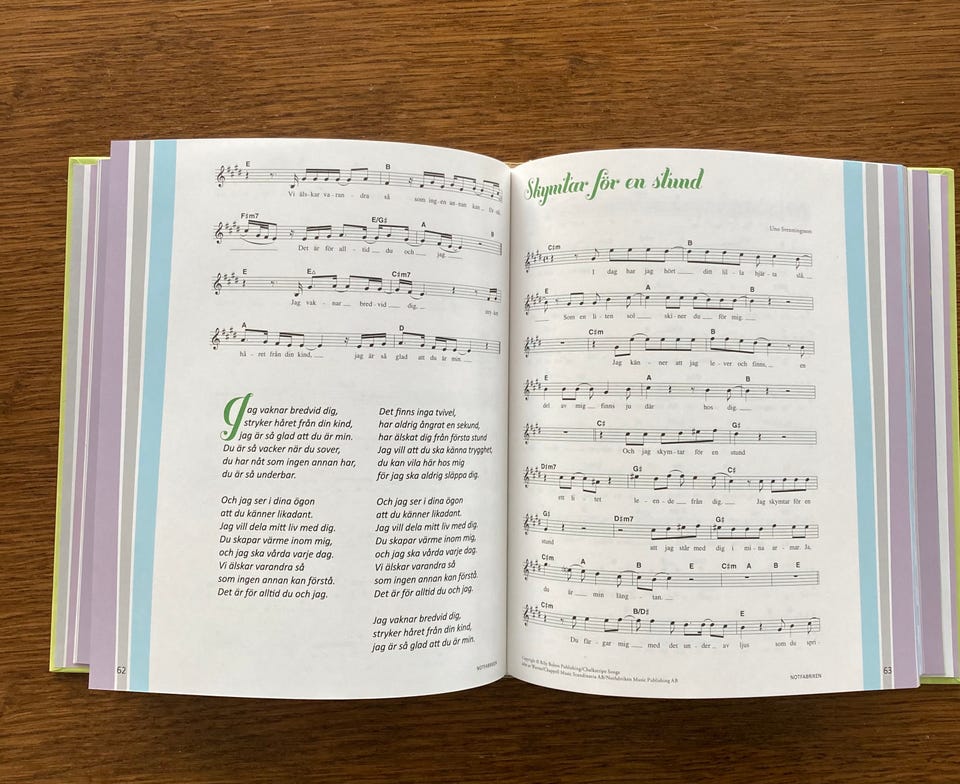 E B
Vi älskar va - ran - dra så som ing - en an - nan kan
F♯m7 E/G♯ A B
Det är för all - tid du och jag.
E E△ C♯m7
Jag vak - nar bred - vid dig, stry - ker
A D
hå - ret från din kind, jag är så glad att du är min
Jag vaknar bredvid dig,
stryker håret från din kind,
jag är så glad att du är min.
Du är så vacker när du sover,
du har nåt som ingen annan har,
du är så underbar.
Och jag ser i dina ögon
att du känner likadant.
Jag vill dela mitt liv med dig.
Du skapar värme inom mig,
och jag ska vårda varje dag.
Vi älskar varandra så
som ingen annan kan förstå.
Det är för alltid du och jag.
Det finns inga tvivel,
har aldrig ångrat en sekund,
har älskat dig från första stund
Jag vill att du ska känna trygghet,
du kan vila här hos mig
för jag ska aldrig släppa dig.
Och jag ser i dina ögon
att du känner likadant.
Jag vill dela mitt liv med dig.
Du skapar värme inom mig,
och jag ska vårda varje dag.
Vi älskar varandra så
som ingen annan kan förstå.
Det är för alltid du och jag.
Jag vaknar bredvid dig,
stryker håret från din kind,
jag är så glad att du är min.
62
NOTFABRIKEN
Skymtar för en stund
Uno Svenningsson
C♯m B
I dag har jag hört din lil - la hjär - ta slå.
E A B
Som en li - ten sol ski - ner du för mig.
C♯m B
Jag kän - ner att jag le - ver och finns, en
E A B
del av mig finns ju där hos dig.
C♯ G♯
Och jag skym - tar för en stund
D♯m7 G♯ C♯
ett li - tet le - en - de från dig. Jag skymtar för en
G♯ D♯m7 G♯
stund att jag står med dig i mi - na ar - mar. Ja,
C♯m A B E C♯m A B E
du är min läng - tan.
C♯m B/D♯ E
Du fär - gar mig med det un - der av ljus som du spri -
Copyright © Billy Butten Publishing/Chalkstripe Songs
Warner/Chappell Music Scandinavia AB/Notfabriken Music Publishing AB
NOTFABRIKEN
63